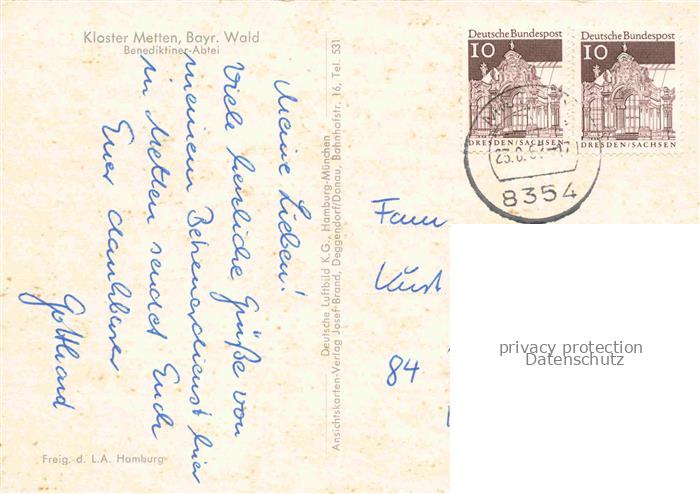 Kloster Metten, Bayr. Wald
Benediktiner-Abtei
Meine Lieben!
Viele herzliche Grüße von
meinem
hier
in Metten sendet Euch
Euer dankbarer
Gotthard
Freig. d. L.A. Hamburg
Deutsche Luftbild K.G., Hamburg-München
Ansichtskarten-Verlag Josef Brand, Deggendorf/Donau, Bahnhofstr. 16, Tel. 531
Deutsche Bundespost
10
DRESDEN/SACHSEN
Deutsche Bundespost
10
DRESDEN/SACHSEN
8354
Fam
Kurt
84
privacy protection
Datenschutz